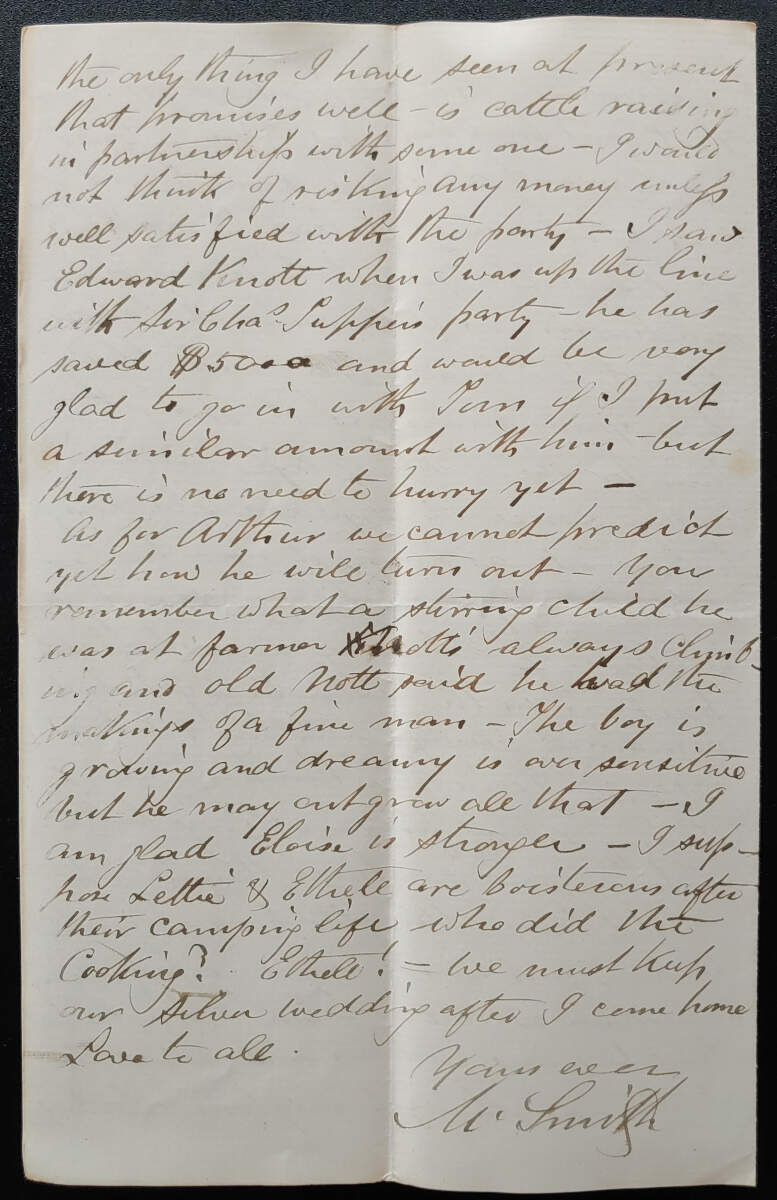 the only thing I have seen at present
that promises well - is cattle raising
in partnership with some one - I would
not think of risking any money unless
well satisfied with the party - I saw
Edward Knott when I was up the line
with Sir Chas. Tupper's party - he has
saved $5000 and would be very
glad to go in with Tom if I put
a similar amount with him - but
there is no need to hurry yet -
As for Arthur we cannot predict
yet how he will turn out - You
remember what a stirring child he
was at farmer Knott's always climb-
ing and old Nott said he had the
makings of a fine man - The boy is
growing and dreamy is over sensitive
but he may outgrow all that - I
am glad Eloise is stronger - I sup-
pose Lettie & Ethell are boisterous after
their camping life who did the
Cooking? Ethell! = We must keep
our silver wedding after I come home
Love to all.
Yours ever
M. Smith